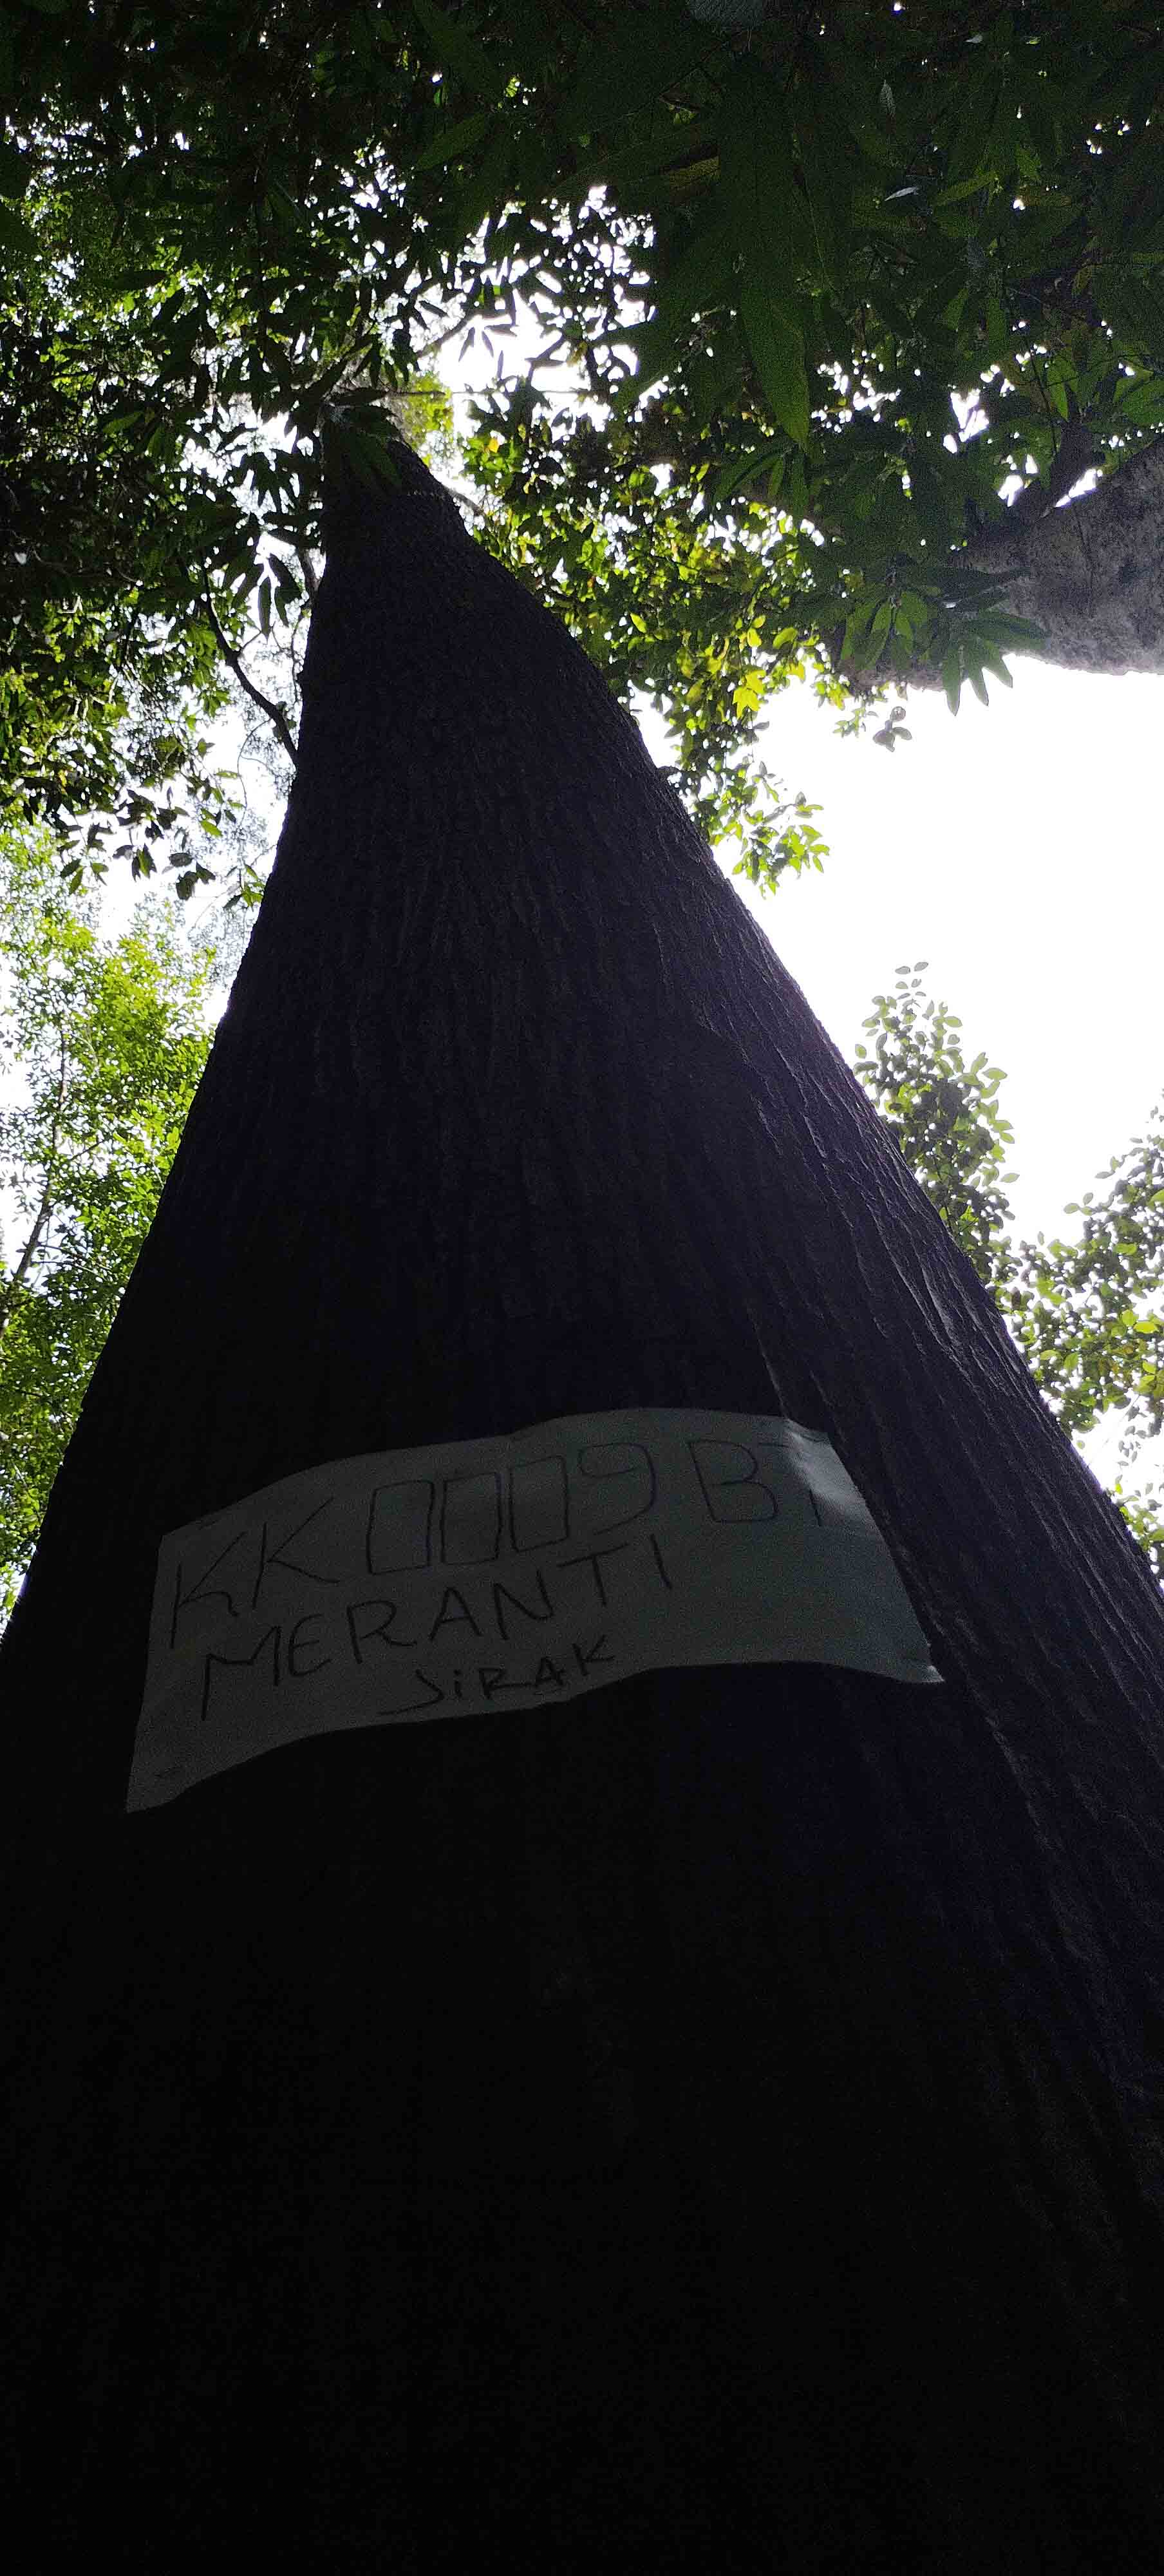 KK 0009 BT
MERANTI
SiRAK